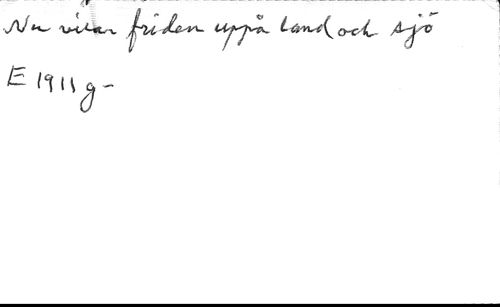 Nu vilar friden uppå land och sjö
E 1911 g-